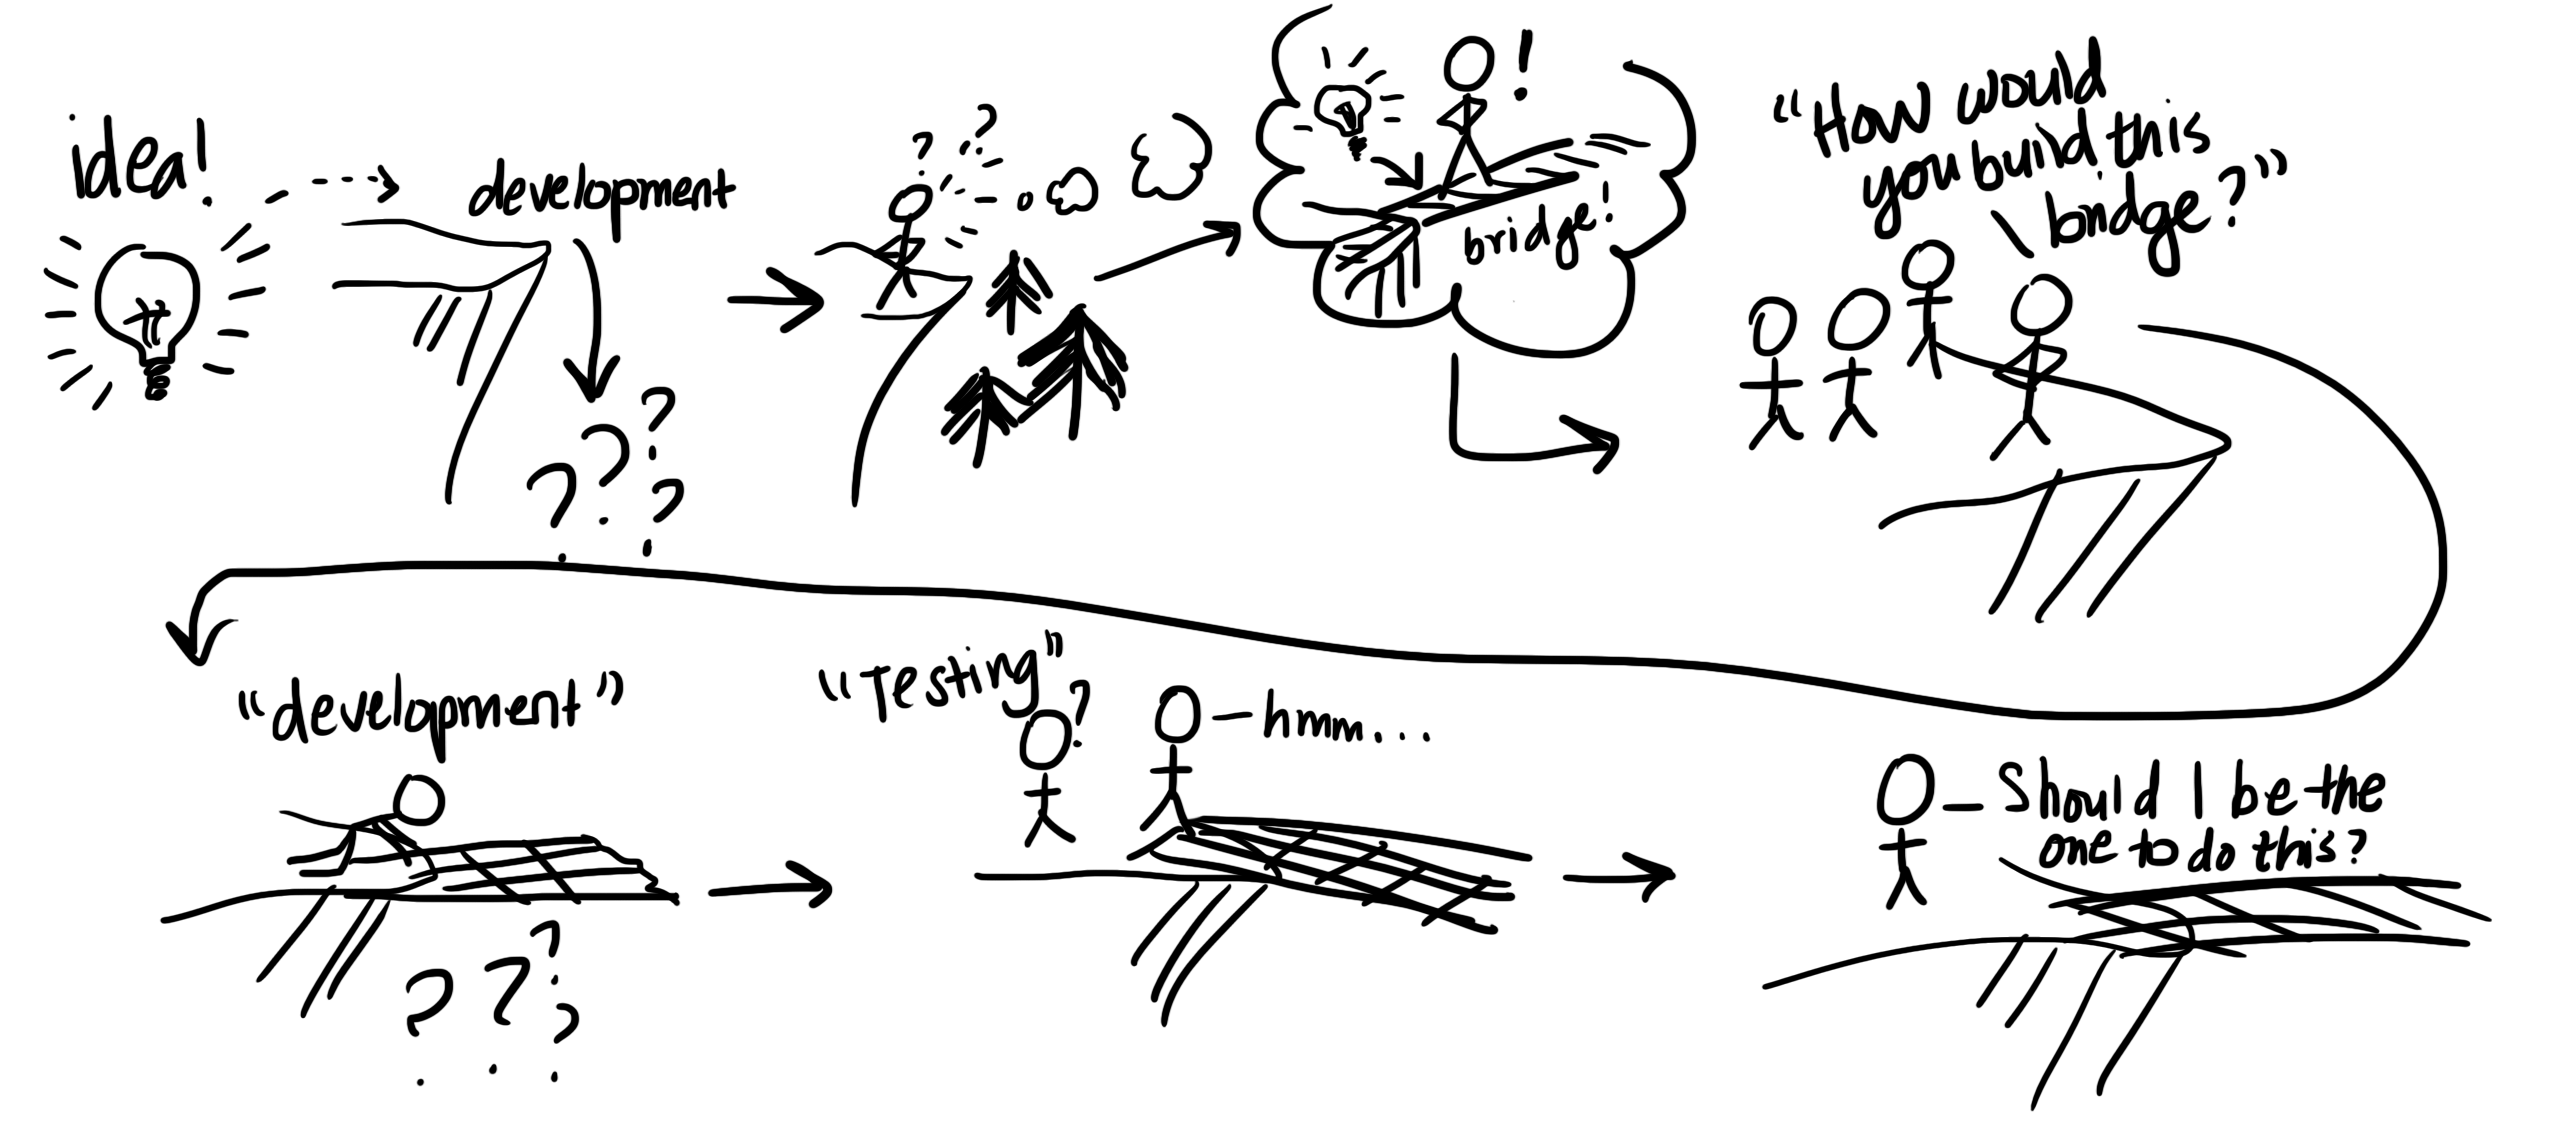 idea!
development
? ?
? ? ? ?
!
bridge!
"How would
you build this
bridge?"
"development"
? ? ? ?
"Testing"
?
hmm...
Should I be the
one to do this?